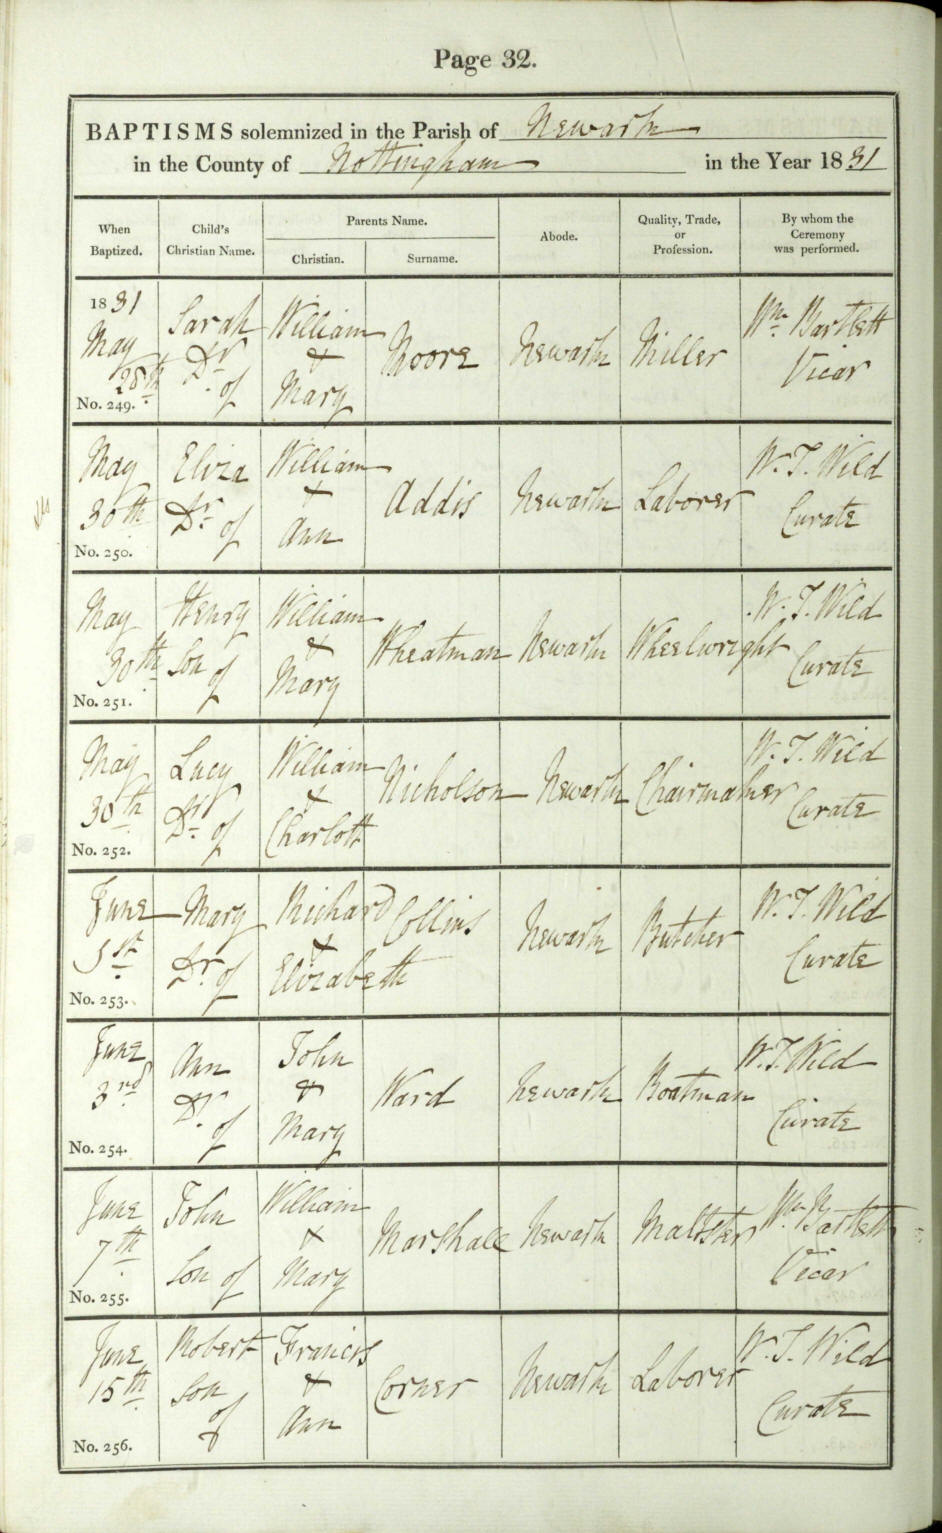 Page 32.
BAPTISMS solemnized in the Parish of Newark
in the County of Nottingham in the Year 1831
When Baptized.
Child's Christian Name.
Parents Name.
Christian.
Surname.
Abode.
Quality, Trade, or Profession.
By whom the Ceremony was performed.
1831
May
28th
No. 249.
Sarah
Dr
of
William
&
Mary
Moore
Newark
Miller
Wm Bartlett
Vicar
May
30th
No. 250.
Eliza
Dr of
William
+
Ann
Addis
Newark
Laborer
W. T. Wild
Curate
May
30th
No. 251.
Henry
Son of
William
&
Mary
Wheatman
Newark
Wheelwright
W. T. Wild
Curate
May
30th
No. 252.
Lucy
Dr of
William
&
Charlott
Nicholson
Newark
Chairmaker
W. T. Wild
Curate
June
1st
No. 253.
Mary
Dr of
Richard
+
Elizabeth
Collins
Newark
Butcher
W. T. Wild
Curate
June
3rd
No. 254.
Ann
Dr
of
John
&
Mary
Ward
Newark
Boatman
W. T. Wild
Curate
June
7th
No. 255.
John
Son of
William
&
Mary
Marshall
Newark
Maltster
Wm Bartlett
Vicar
June
15th
No. 256.
Robert
Son
of
Francis
&
Ann
Corner
Newark
Laborer
W. T. Wild
Curate